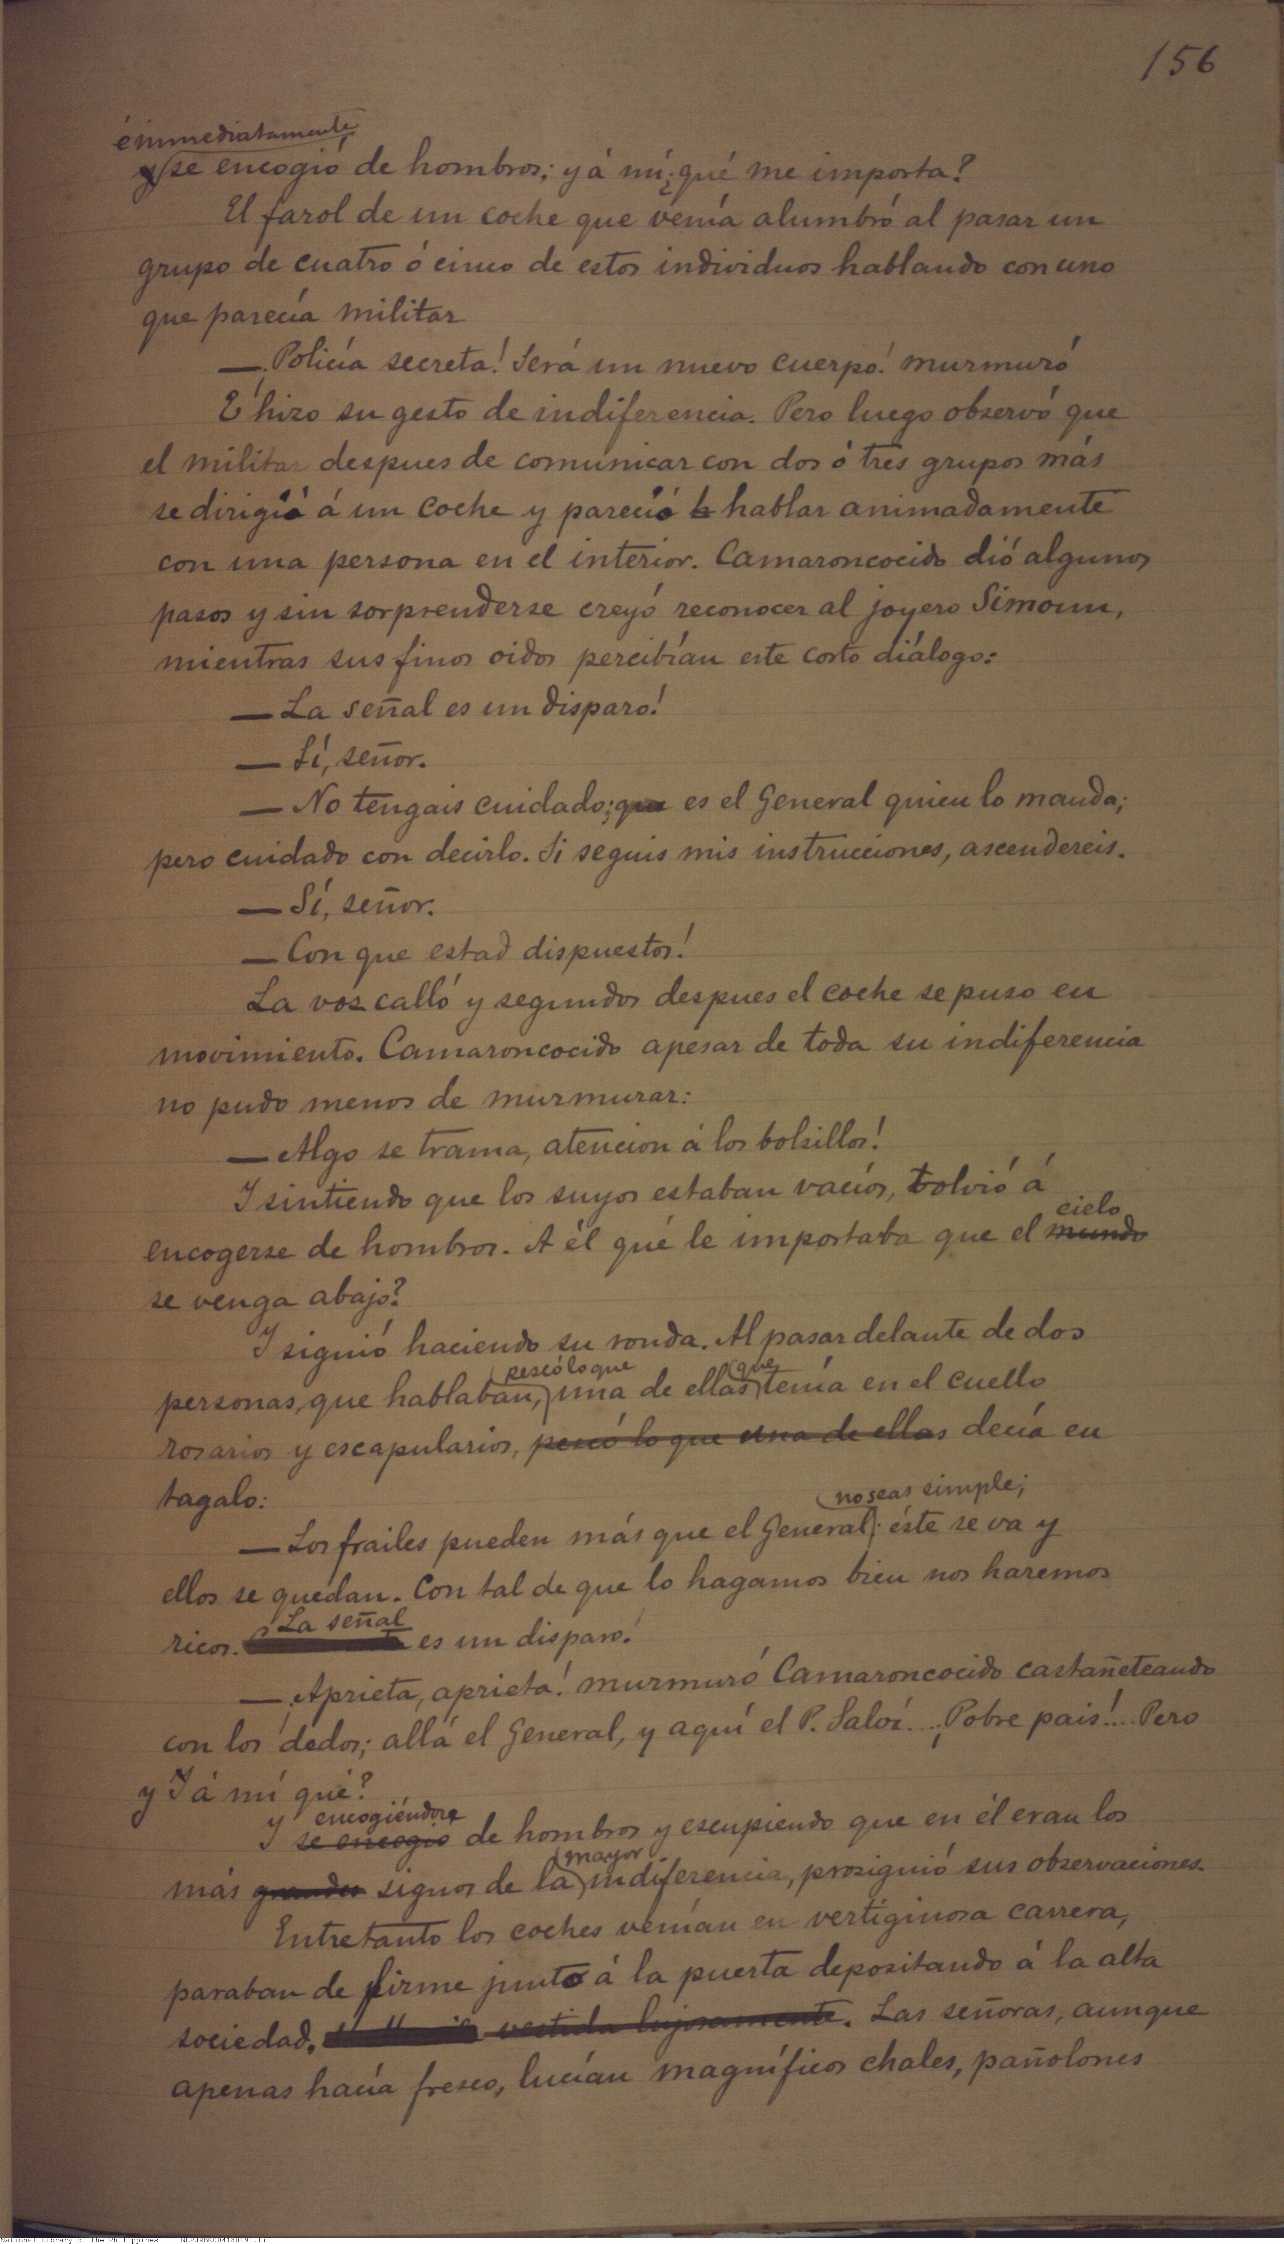 156
é inmediatamente
y se encogió de hombros; y á mí ¿qué me importa?
El farol de un coche que venía alumbró al pasar un
grupo de cuatro ó cinco de estos individuos hablando con uno
que parecía militar
—¡Policía secreta! Será un nuevo cuerpo! murmuró
E hizo su gesto de indiferencia. Pero luego observó que
el militar despues de comunicar con dos ó tres grupos más
se dirigió á un coche y pareció hablar animadamente
con una persona en el interior. Camaroncocido dió algunos
pasos y sin sorprenderse creyó reconocer al joyero Simoun,
mientras sus finos oidos percibían este corto diálogo:
— La señal es un disparo!
— Sí, señor.
— No tengais cuidado; que es el General quien lo manda;
pero cuidado con decirlo. Si seguis mis instrucciones, ascendereis.
— Sí, señor.
— Con que estad dispuestos!
La voz calló y segundos despues el coche se puso en
movimiento. Camaroncocido apesar de toda su indiferencia
no pudo menos de murmurar:
— Algo se trama, atencion á los bolsillos!
Y sintiendo que los suyos estaban vacíos, volvió á
cielo
encogerse de hombros. A él qué le importaba que el mundo
se venga abajo?
Y siguió haciendo su ronda. Al pasar delante de dos
pescó lo que que
personas, que hablaban, una de ellas tenía en el cuello
rosarios y escapularios, pescó lo que una de ellas decía en
tagalo:
no seas simple;
— Los frailes pueden más que el General; éste se va y
ellos se quedan. Con tal de que lo hagamos bien nos haremos
La señal
ricos. es un disparo!
— ¡Aprieta, aprieta! murmuró Camaroncocido castañeteando
con los dedos; allá el General, y aquí el P. Salví.... ¡Pobre pais!... Pero
y Y á mí qué?
y encogiéndose
Y se encogió de hombros y escupiendo que en él eran los
mayor
más grandes signos de la indiferencia, prosiguió sus observaciones.
Entretanto los coches venían en vertiginosa carrera,
paraban de firme junto á la puerta depositando á la alta
sociedad. vestida lujosamente. Las señoras, aunque
apenas hacía fresco, lucían magníficos chales, pañolones